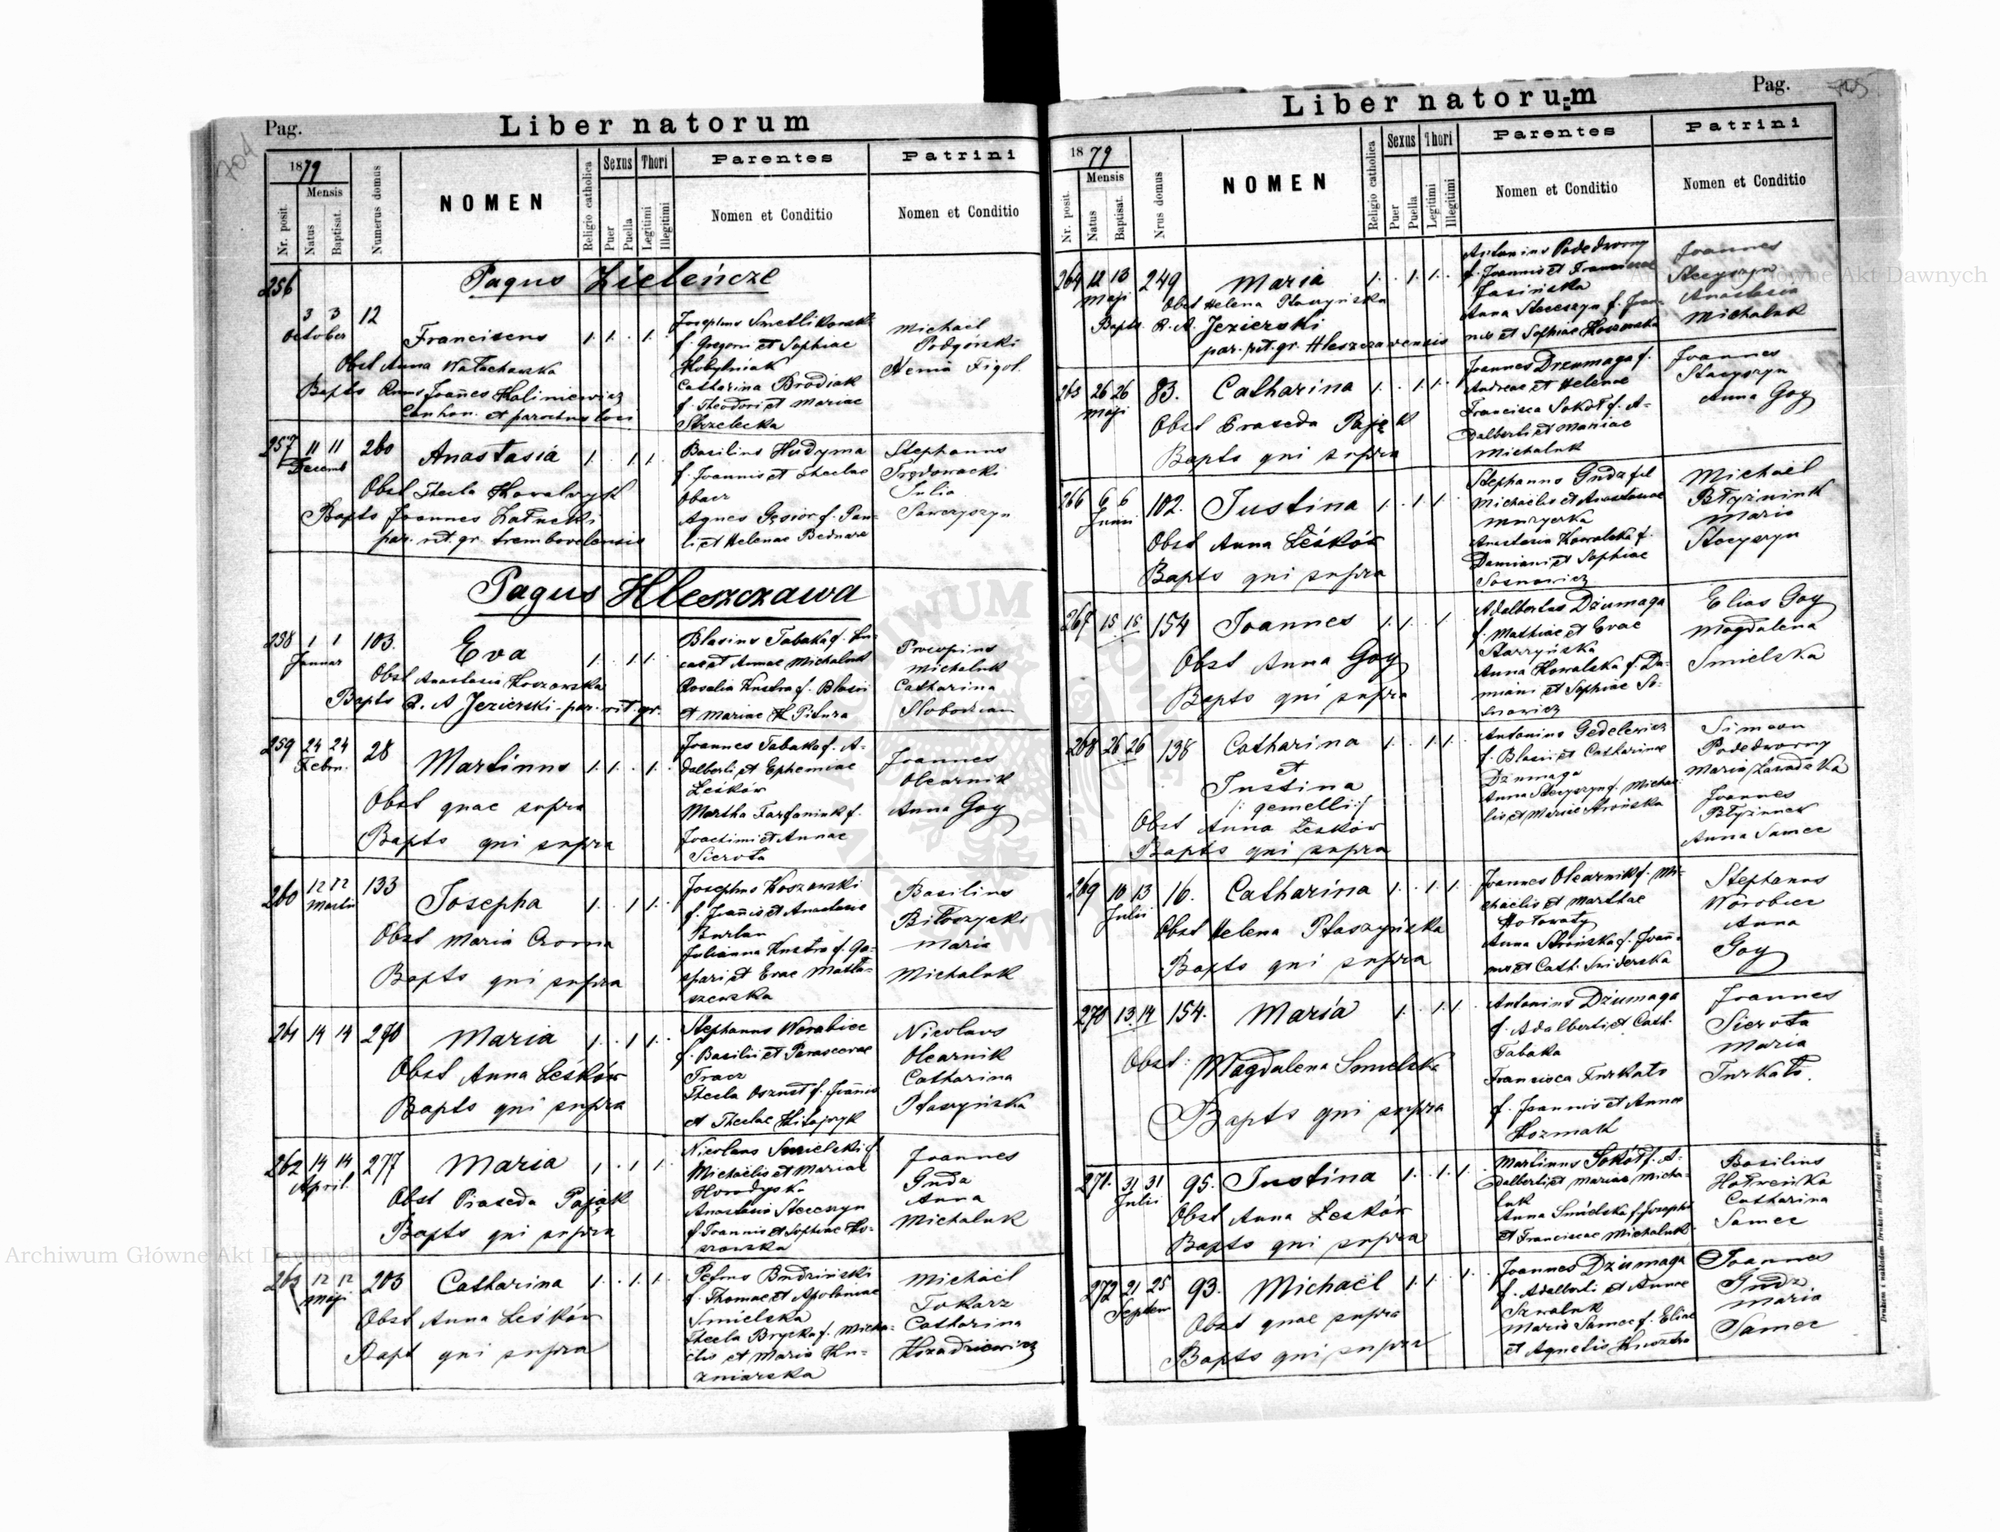 704
Pag.
Liber natorum
1879
Mensis
Nr. posit.
Natus
Baptisat.
Numerus domus
NOMEN
Religio catholica
Sexus
Puer
Puella
Thori
Legitimi
Illegitimi
Parentes
Nomen et Conditio
Patrini
Nomen et Conditio
256
Pagus Zieleńcze
3 3 12
October
Franciscus
1 1 1
Obst Anna Wałachowska
Bapts Joañes Kaliniewicz
et parochus loci
Josephus
f. Gregorii et Sophiae
Kobylniak
Catharina Brodiak
f. Theodori et Mariae
Strzelecka
Michaël
Podgórski
Figol
257 11 11 260
Decemb
Anastasia
1 1 1
Obst Thecla Kowalczyk
Bapts Joannes Załuski
par. rit. gr. trembovelensis
Basilius Hudyma
f. Joannis et Theclae
Agnes Gęsior f. Pau-
li et Helenae Bednarz
Stephanus
Julia
Saweryszyn
Pagus Hleszczawa
258 1 1 103.
Januar
Eva
1 1 1
Obst Anastasia Koszowska
Bapts R. A Jezierski par. rit. gr.
Blasius Tabaka f. Lu-
cae et Annae Michaluk
Rosalia Kustra f. Blasii
et Mariae H Pitura
Procopius
Michaluk
Catharina
Slobodian
259 24 24 28
Febru.
Martinus
1 1 1
Obst quae supra
Bapts qui supra
Joannes Tabaka f. A-
dalberti et Ephemiae
Leśków
Martha Farfaniuk f.
Joachimi et Annae
Sierota
Joannes
Olearnik
Anna Goy
260 12 12 133
Martii
Josepha
1 1 1
Obst Maria
Bapts qui supra
Josephus Koszowski
f. Joañis et Anastasiae
Burlan
Julianna Kustra f. Ga-
spari et Evae Matta-
szewska
Basilius
Maria
Michaluk
261 14 14 290
Maria
1 1 1
Obst Anna Leśków
Bapts qui supra
Stephanus Worobiec
f. Basilii et Parascevae
Tracz
Thecla f. Joañis
et Theclae
Nicolaus
Olearnik
Catharina
Ptaszyńska
262 14 14 277
April.
Maria
1 1 1
Obst Praseda Pająk
Bapts qui supra
Nicolaus Smielski f.
Michaëlis et Mariae
Horodyska
Anastasia Steceszyn
f. Joannis et Sophiae Ko-
szowska
Joannes
Guda
Anna
Michaluk
263 12 12 203
Maji
Catharina
1 1 1
Obst Anna Leśków
Bapt qui supra
Petrus Budziński
f. Thomae et Apoloniae
Smielska
Thecla Brycka f. Micha-
ëlis et Maria Ku-
zniarska
Michaël
Tokarz
Catharina
Pag.
705
Liber natorum
1879
Mensis
Nr. posit.
Natus
Baptisat.
Nrus domus
NOMEN
Religio catholica
Sexus
Puer
Puella
Thori
Legitimi
Illegitimi
Parentes
Nomen et Conditio
Patrini
Nomen et Conditio
264 12 13 249
Maji
Maria
1 1 1
Obst Helena Ptaszyńska
Bapts R. A. Jezierski
par. rit. gr. Hleszczavensis
Antonius Podedworny
f. Joannis et Franciscae
Jasińska
Anna Steceszyn f. Joan-
nis et Sophiae Koszowska
Joannes
Steczyszyn
Anastasia
Michaluk
265 26 26 83.
Maji
Catharina
1 1 1
Obst Praseda Pająk
Bapts qui supra
Joannes Dziumaga f.
Andreae et Helenae
Francisca Sokół f. A-
dalberti et Mariae
Michaluk
Joannes
Steczyszyn
Anna Goy
266 6 6 102.
Junii
Justina
1 1 1
Obst Anna Leśków
Bapts qui supra
Stephanus Guda fil
Michaëlis et Anastasiae
Anastasia Kowalska f.
Damiani et Sophiae
Sosnowicz
Michaël
Maria
Steczyszyn
267 15 18 154
Joannes
1 1 1
Obst Anna Goy
Bapts qui supra
Adalbertus Dziumaga
f. Mathiae et Evae
Starzyńska
Anna Kowalska f. Da-
miani et Sophiae So-
snowicz
Elias Goy
Magdalena
Smielska
268 26 26 138
Catharina
et
Justina
/: gemelli :/
1 1 1
Obst Anna Leśków
Bapts qui supra
Antonius Gedelewicz
f. Blasii et Catharinae
Dziumaga
Anna Steczyszyn f. Michaë-
lis et Mariae
Simeon
Podedworny
Maria Zawadzka
Joannes
Anna Samec
269 10 13 16.
Julii
Catharina
1 1 1
Obst Helena Ptaszyńska
Bapts qui supra
Joannes Olearnik f. Mi-
chaëlis et Marthae
Hołowaty
Anna f. Joañ-
nis et Cath. Sniderska
Stephanus
Worobiec
Anna
Goy
270 13 14 154.
Maria
1 1 1
Obst: Magdalena Smielska
Bapts qui supra
Antonius Dziumaga
f. Adalberti et Cath.
Tabaka
Francisca Turkało
f. Joannis et Annae
Kozmak
Joannes
Sierota
Maria
Turkało.
271. 31 31 95.
Julii
Justina
1 1 1
Obst Anna Leśków
Bapts qui supra
Martinus Sokół f. A-
dalberti et Mariae Micha-
luk
Anna Smielska f. Josephi
et Franciscae Michaluk
Basilius
Catharina
Samec
272 21 25 93.
Septem
Michaël
1 1 1
Obst quae supra
Bapts qui supra
Joannes Dziumaga
f. Adalberti et Annae
Szwaluk
Maria Samec f. Eliae
et Agnetis
Joannes
Guda
Maria
Samec
Drukiem i nakładem Drukarni Ludowej we Lwowie.
Archiwum Główne Akt Dawnych
Archiwum Główne Akt Dawnych